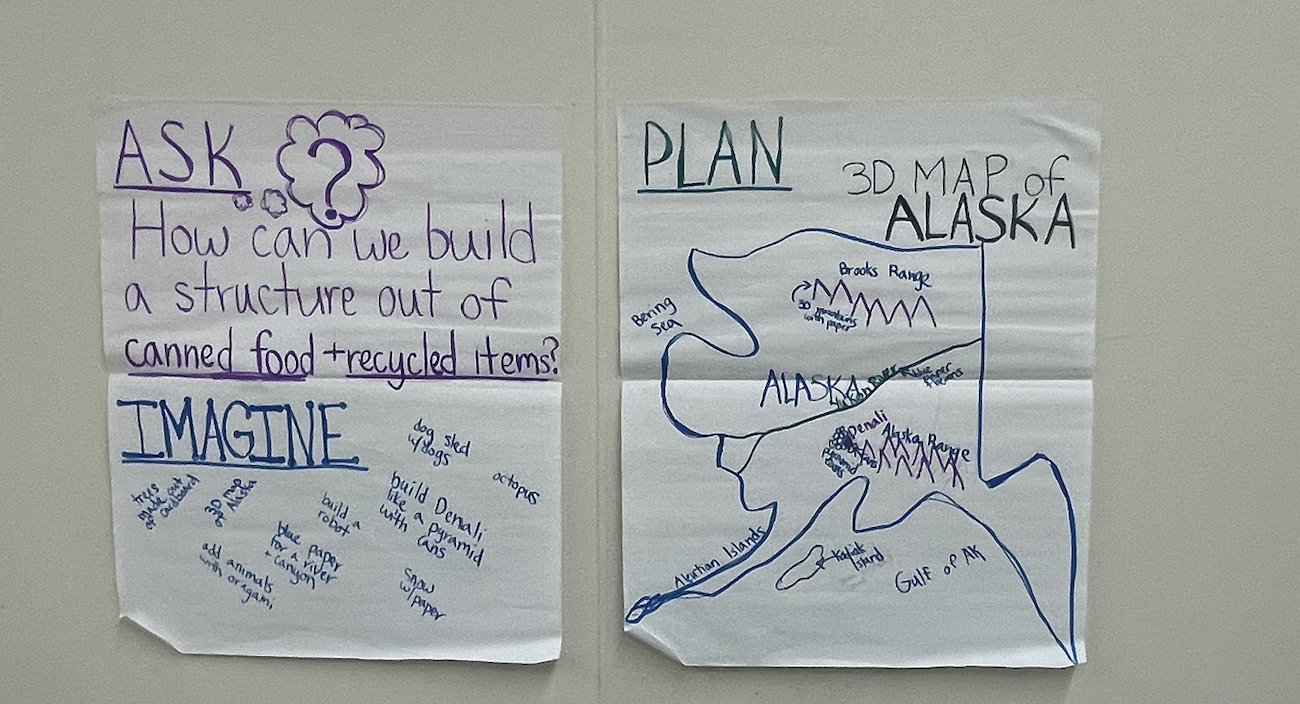 ASK ?
How can we build
a structure out of
canned food + recycled items?
IMAGINE
dog sled
w/dogs
octopus
trees
made out
of cardboard
3D map
of Alaska
build a
robot
build Denali
like a pyramid
with cans
blue paper
for a river
+ canyon
add animals
with oragami
Snow
w/paper
PLAN
3D MAP of
ALASKA
Brooks Range
3D mountains
with paper
Bering
Sea
ALASKA
Yukon River
Blue Paper
Denali
Alaska Range
pyramid
Aleutian Islands
Island
Gulf of AK